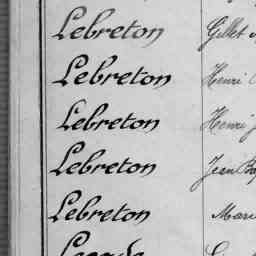 Lebreton Gillet
Lebreton Henri
Lebreton Henri J
Lebreton Jean Ba
Lebreton Mari